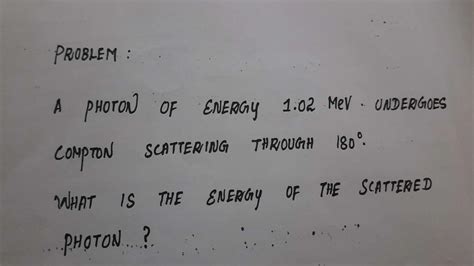 PROBLEM :
A PHOTON OF ENERGY 1.02 MeV UNDERGOES
COMPTON SCATTERING THROUGH 180°.
WHAT IS THE ENERGY OF THE SCATTERED
PHOTON ?